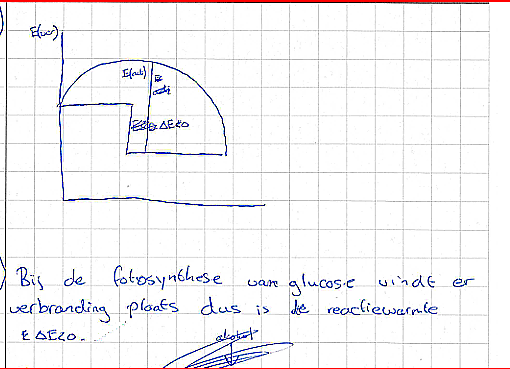 E(act)
ΔE<0
Bij de fotosynthese van glucose vindt er
verbranding plaats dus is de reactiewarmte
ΔE<0.